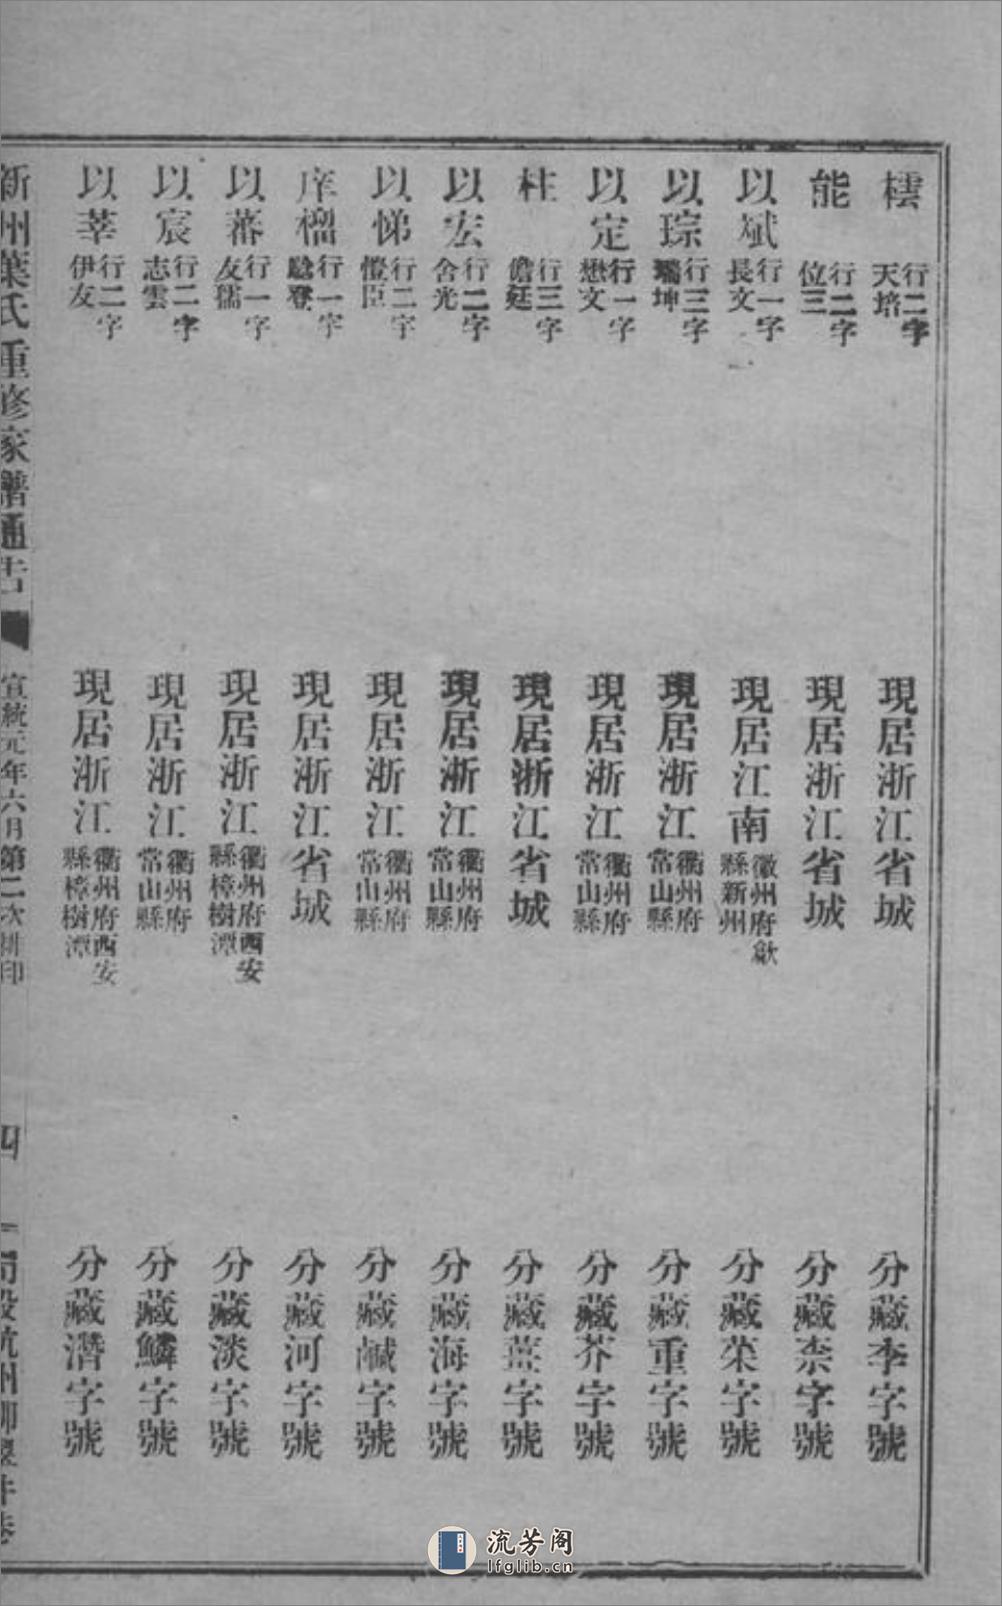 橒 行二字天培 現居浙江省城 分藏李字號
能 行二字位三 現居浙江省城 分藏柰字號
以斌 行一字長文 現居江南徽州府歙縣新州 分藏菜字號
以琮 行三字瑞坤 現居浙江衢州府常山縣 分藏重字號
以定 行一字懋文 現居浙江衢州府常山縣 分藏芥字號
柱 行三字儋廷 現居浙江省城 分藏薑字號
以宏 行二字舍光 現居浙江衢州府常山縣 分藏海字號
以悌 行二字愷臣 現居浙江衢州府常山縣 分藏鹹字號
榴 行一字登 現居浙江省城 分藏河字號
以蕃 行一字友儒 現居浙江衢州府西安縣樟樹潭 分藏淡字號
以宸 行二字志雲 現居浙江衢州府常山縣 分藏鱗字號
以莘 行二字伊友 現居浙江衢州府西安縣樟樹潭 分藏潛字號
新州葉氏重修家譜通告 宣統元年六月第二次排印 四 局設杭州柳翠井巷
流芳阁
lfglib.cn